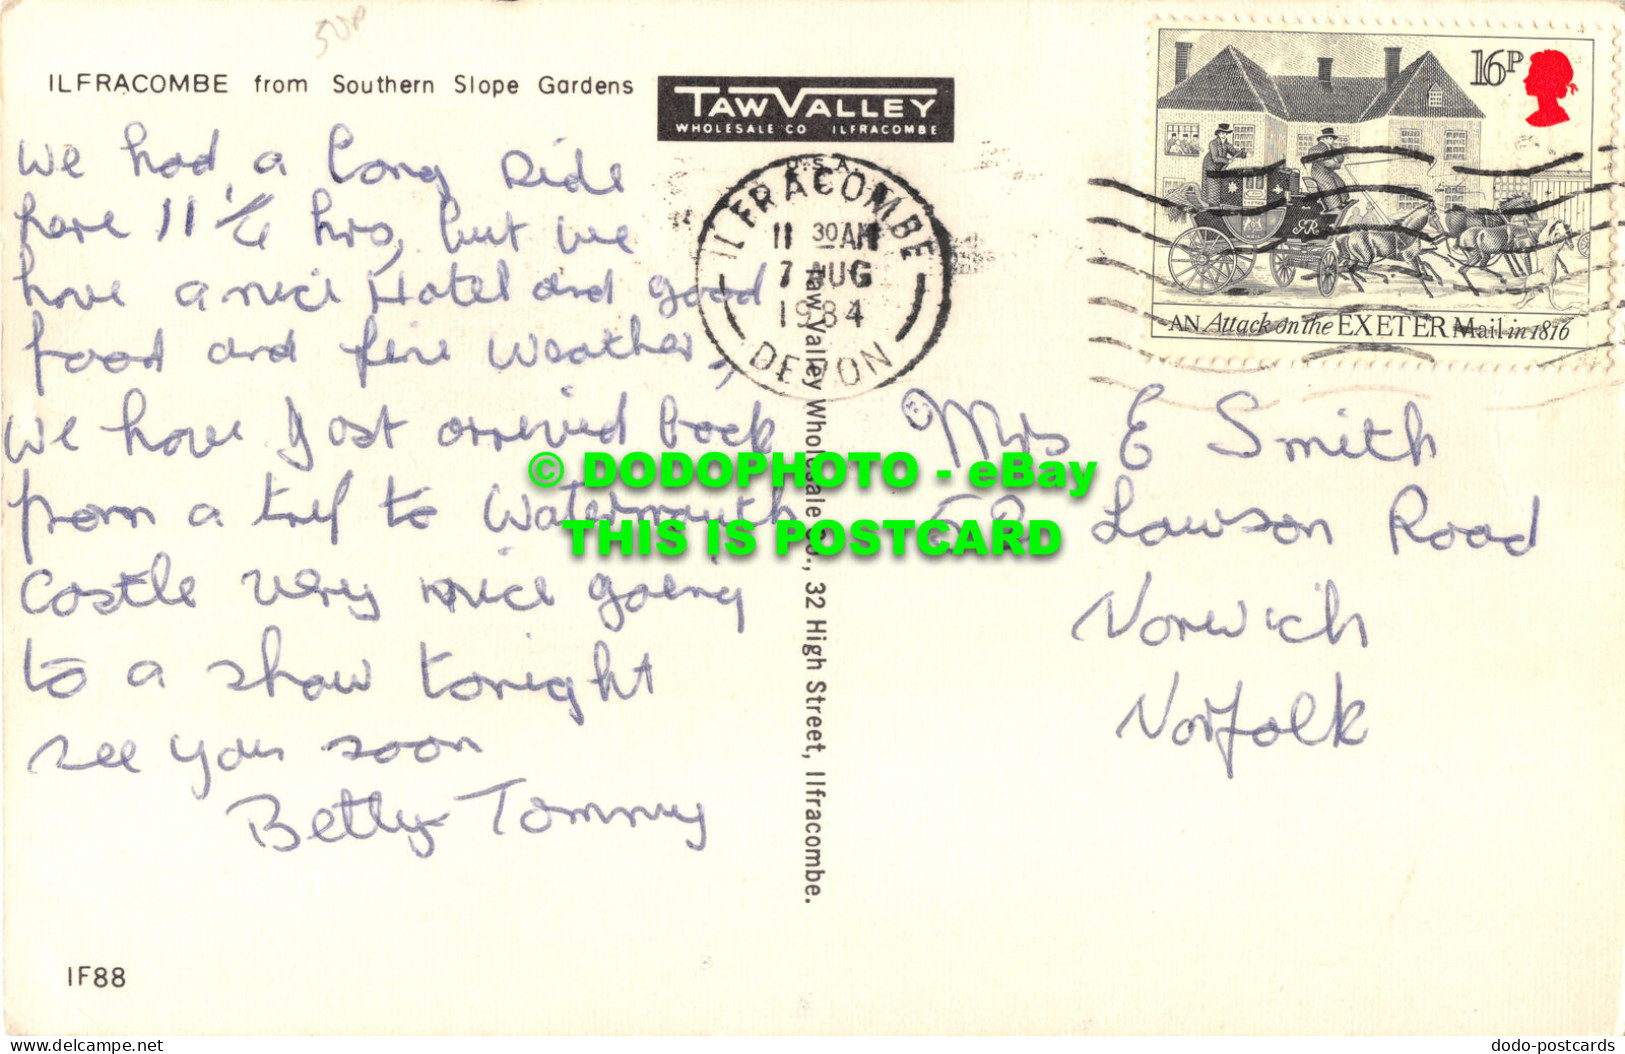 50P
ILFRACOMBE from Southern Slope Gardens
TAW VALLEY
WHOLESALE CO ILFRACOMBE
We had a long Ride
here 11 1/4 hrs, but we
have a nice Hotel and good
food and fine weather,
We have Just arrived back
from a trip to Watermouth
Castle very nice going
to a show tonight
see you soon
Betty Tommy
IF88
U.S.A.
ILFRACOMBE
11 30 AM
7 AUG
1984
DEVON
Taw Valley Wholesale Co., 32 High Street, Ilfracombe.
16P
AN Attack on the EXETER Mail in 1816
Mrs E Smith
Lawson Road
Norwich
Norfolk
© DODOPHOTO - eBay
THIS IS POSTCARD
Visit DELCAMPE.NET
dodo-postcards